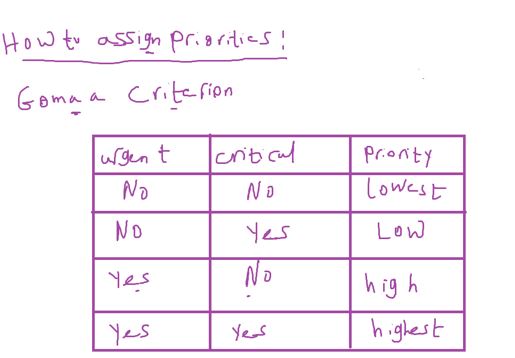 How to assign priorities!
Gomaa Criterion
urgent critical Priority
No No lowest
No Yes Low
Yes No high
Yes Yes highest